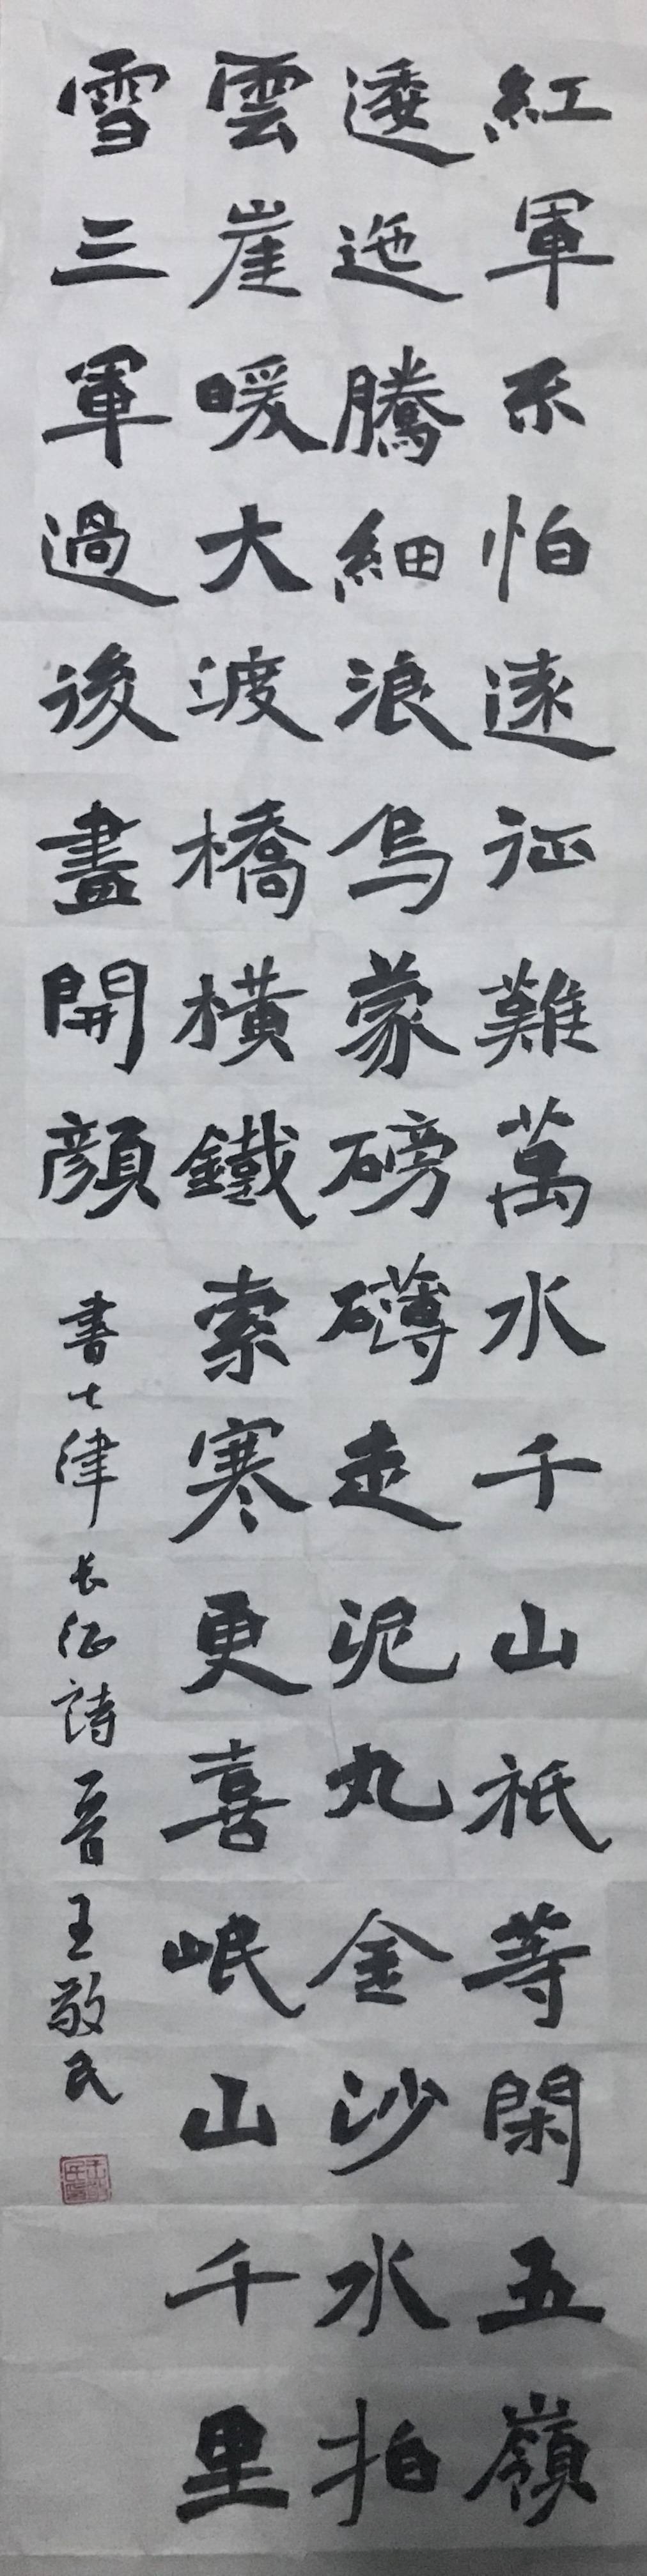 紅軍不怕遠征難萬水千山祇等閑五嶺
逶迤騰細浪烏蒙磅礴走泥丸金沙水拍
雲崖暖大渡橋橫鐵索寒更喜岷山千里
雪三軍過後盡開顏
書七律长征詩晉王敬民